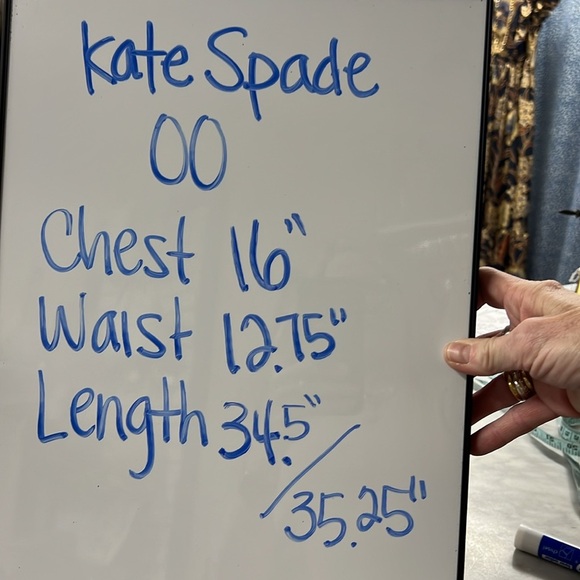 Kate Spade
00
Chest 16"
Waist 12.75"
Length 34.5"
/ 35.25"